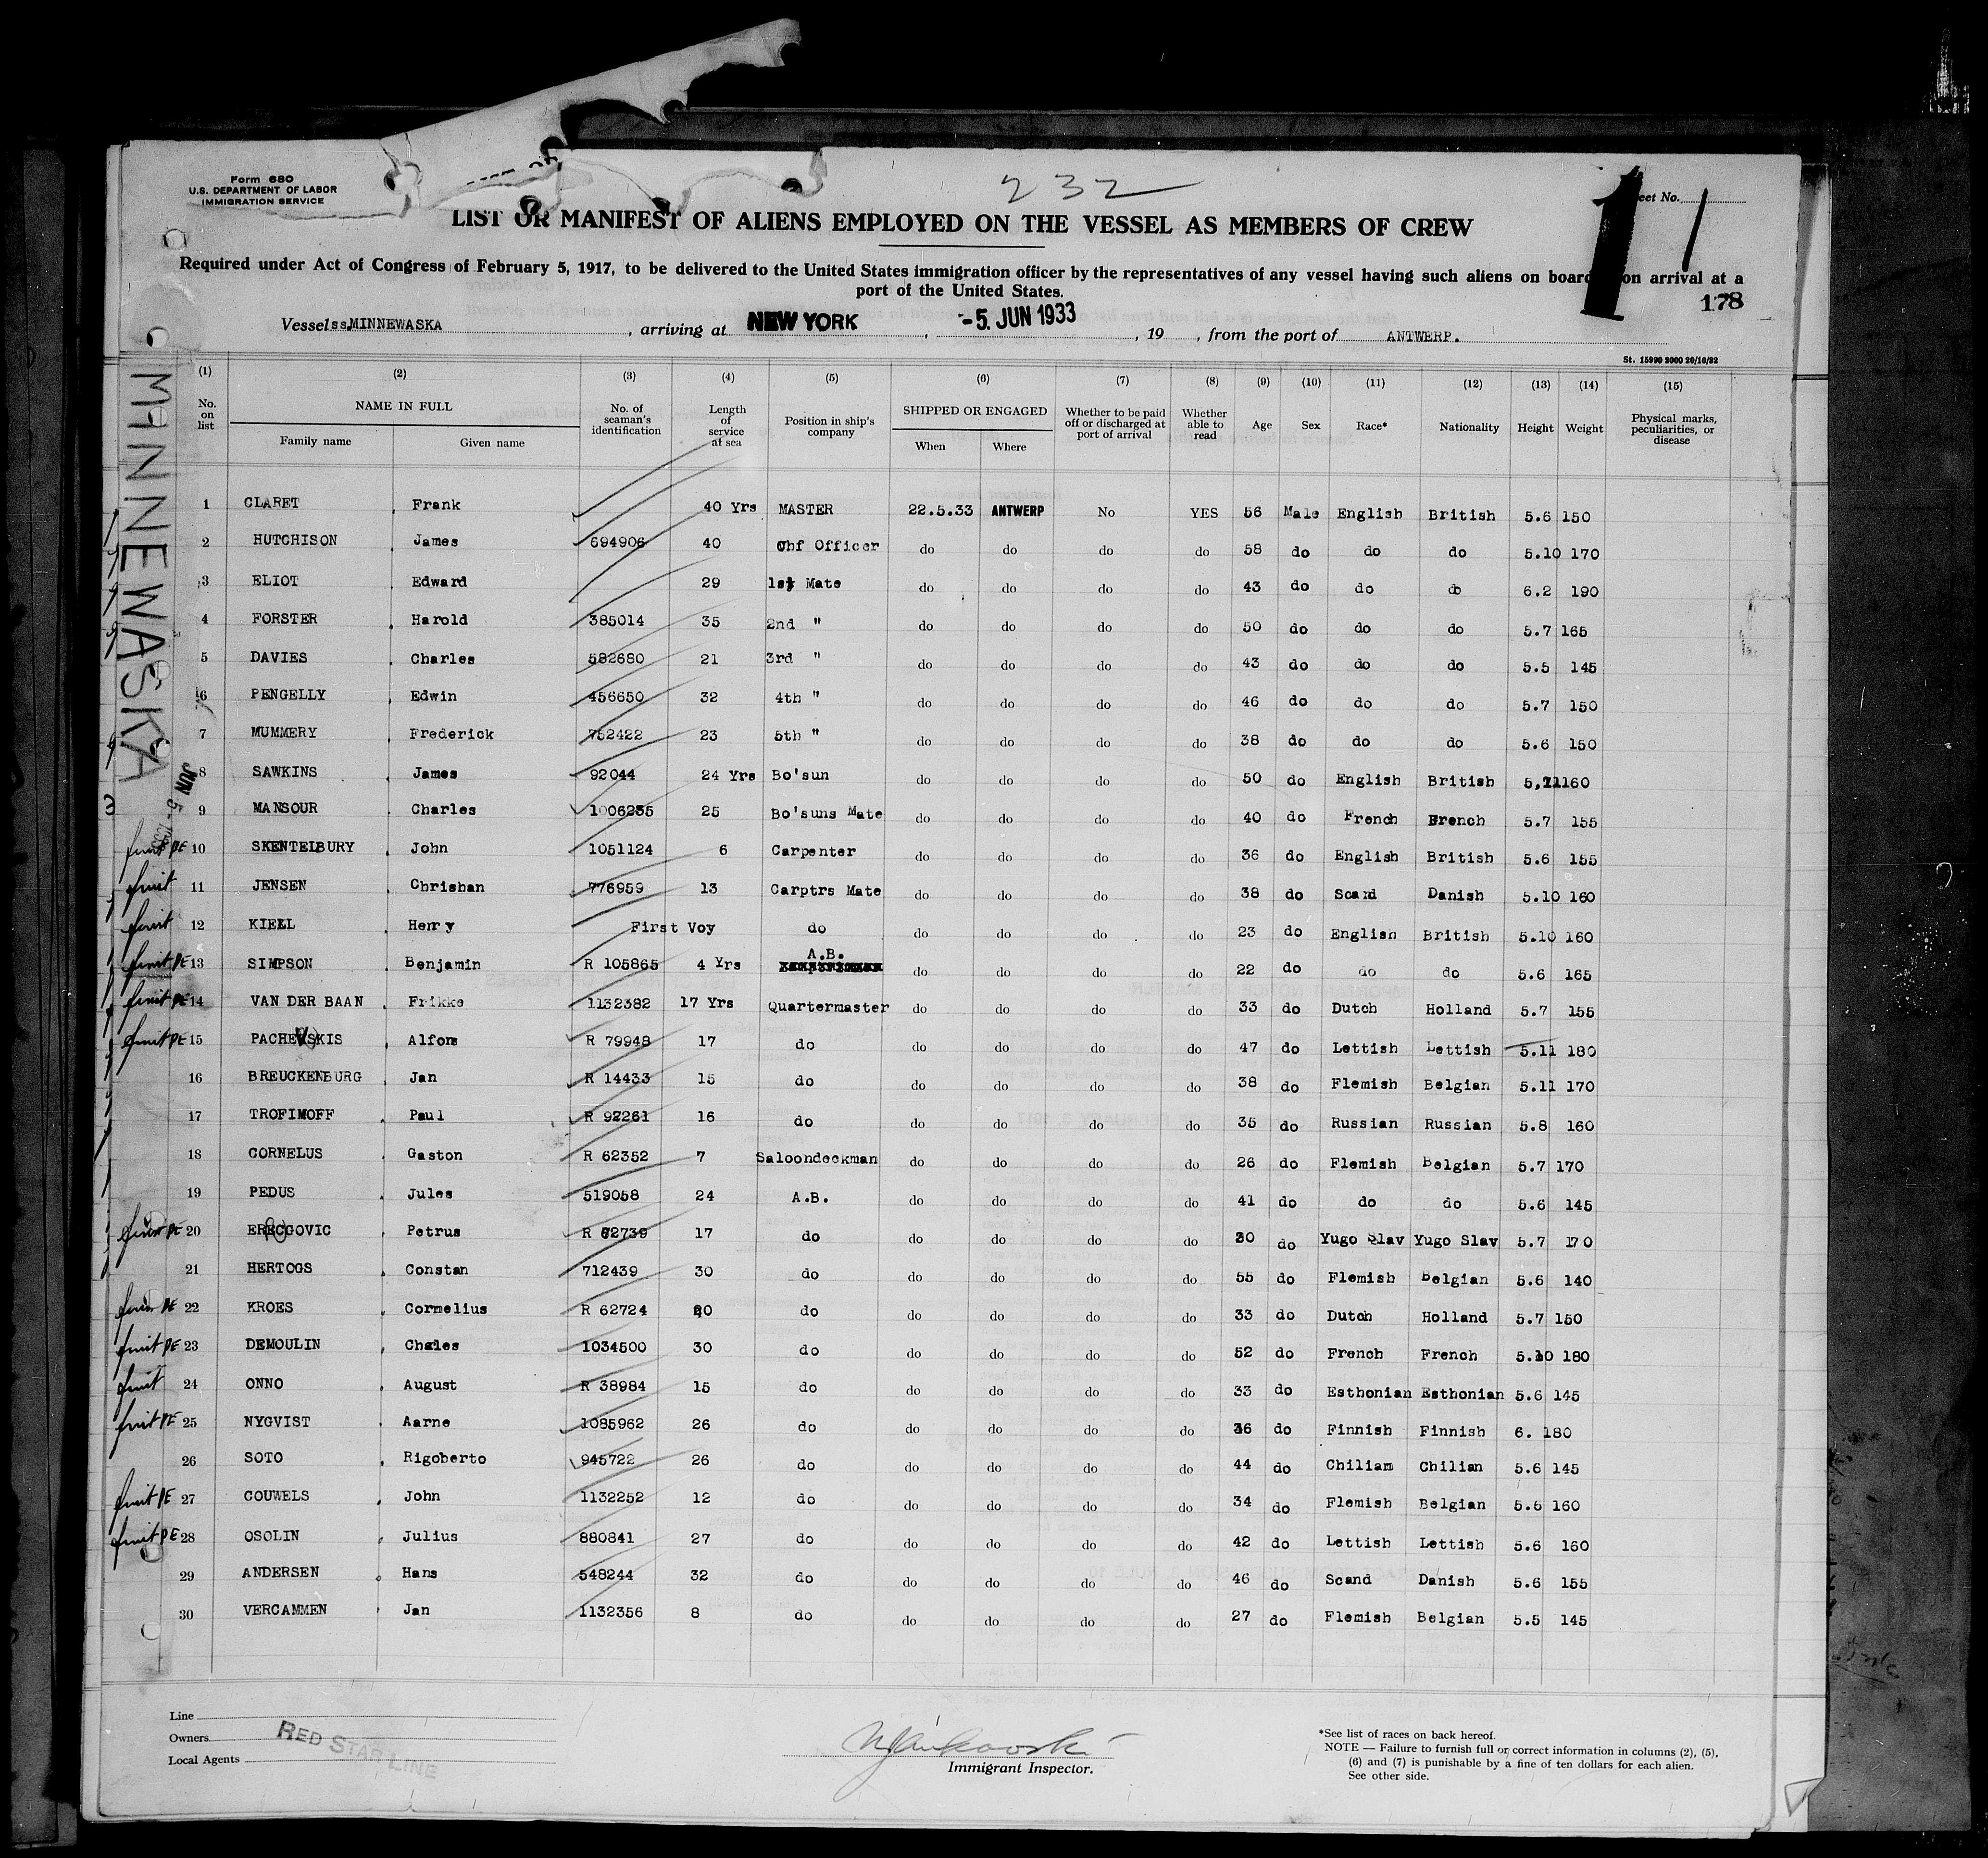 232
Form 680
U.S. DEPARTMENT OF LABOR
IMMIGRATION SERVICE
eet No. 1
LIST OR MANIFEST OF ALIENS EMPLOYED ON THE VESSEL AS MEMBERS OF CREW
Required under Act of Congress of February 5, 1917, to be delivered to the United States immigration officer by the representatives of any vessel having such aliens on board on arrival at a
port of the United States.
178
Vessel ss MINNEWASKA, arriving at NEW YORK, -5. JUN 1933, 19 , from the port of ANTWERP.
St. 15990 2000 20/10/32
(1) (2) (3) (4) (5) (6) (7) (8) (9) (10) (11) (12) (13) (14) (15)
No. on list NAME IN FULL Family name Given name No. of seaman's identification Length of service at sea Position in ship's company SHIPPED OR ENGAGED When Where Whether to be paid off or discharged at port of arrival Whether able to read Age Sex Race* Nationality Height Weight Physical marks, peculiarities, or disease
MINNEWASKA
JUN 5
3
1 CLARET, Frank 40 Yrs MASTER 22.5.33 ANTWERP No YES 56 Male English British 5.6 150
2 HUTCHISON, James 694906 40 Chf Officer do do do do 58 do do do 5.10 170
3 ELIOT, Edward 29 1st Mate do do do do 43 do do do 6.2 190
4 FORSTER, Harold 385014 35 2nd " do do do do 50 do do do 5.7 165
5 DAVIES, Charles 582680 21 3rd " do do do do 43 do do do 5.5 145
6 PENGELLY, Edwin 456650 32 4th " do do do do 46 do do do 5.7 150
7 MUMMERY, Frederick 752422 23 5th " do do do do 38 do do do 5.6 150
8 SAWKINS, James 92044 24 Yrs Bo'sun do do do do 50 do English British 5.11 160
9 MANSOUR, Charles 1006235 25 Bo'suns Mate do do do do 40 do French French 5.7 155
10 SKENTELBURY, John 1051124 6 Carpenter do do do do 36 do English British 5.6 155
11 JENSEN, Chrishan 776959 13 Carptrs Mate do do do do 38 do Scand Danish 5.10 160
12 KIELL, Henry First Voy do do do do do 23 do English British 5.10 160
13 SIMPSON, Benjamin R 105865 4 Yrs A.B. do do do do 22 do do do 5.6 165
14 VAN DER BAAN, Frikke 1132382 17 Yrs Quartermaster do do do do 33 do Dutch Holland 5.7 155
15 PACHEVSKIS, Alfons R 79948 17 do do do do do 47 do Lettish Lettish 5.11 180
16 BREUCKENBURG, Jan R 14433 15 do do do do do 38 do Flemish Belgian 5.11 170
17 TROFIMOFF, Paul R 92261 16 do do do do do 35 do Russian Russian 5.8 160
18 CORNELUS, Gaston R 62352 7 Saloondeckman do do do do 26 do Flemish Belgian 5.7 170
19 PEDUS, Jules 519058 24 A.B. do do do do 41 do do do 5.6 145
20 ERECGOVIC, Petrus R 62739 17 do do do do do 30 do Yugo Slav Yugo Slav 5.7 170
21 HERTOGS, Constan 712439 30 do do do do do 55 do Flemish Belgian 5.6 140
22 KROES, Cornelius R 62724 20 do do do do do 33 do Dutch Holland 5.7 150
23 DEMOULIN, Chales 1034500 30 do do do do do 52 do French French 5.10 180
24 ONNO, August R 38984 15 do do do do do 33 do Esthonian Esthonian 5.6 145
25 NYGVIST, Aarne 1085962 26 do do do do do 36 do Finnish Finnish 6. 180
26 SOTO, Rigoberto 945722 26 do do do do do 44 do Chilian Chilian 5.6 145
27 GOUWELS, John 1132252 12 do do do do do 34 do Flemish Belgian 5.5 160
28 OSOLIN, Julius 880841 27 do do do do do 42 do Lettish Lettish 5.6 160
29 ANDERSEN, Hans 548244 32 do do do do do 46 do Scand Danish 5.6 155
30 VERCAMMEN, Jan 1132356 8 do do do do do 27 do Flemish Belgian 5.5 145
Line
Owners
Local Agents
RED STAR LINE
Immigrant Inspector.
*See list of races on back hereof.
NOTE — Failure to furnish full or correct information in columns (2), (5),
(6) and (7) is punishable by a fine of ten dollars for each alien.
See other side.